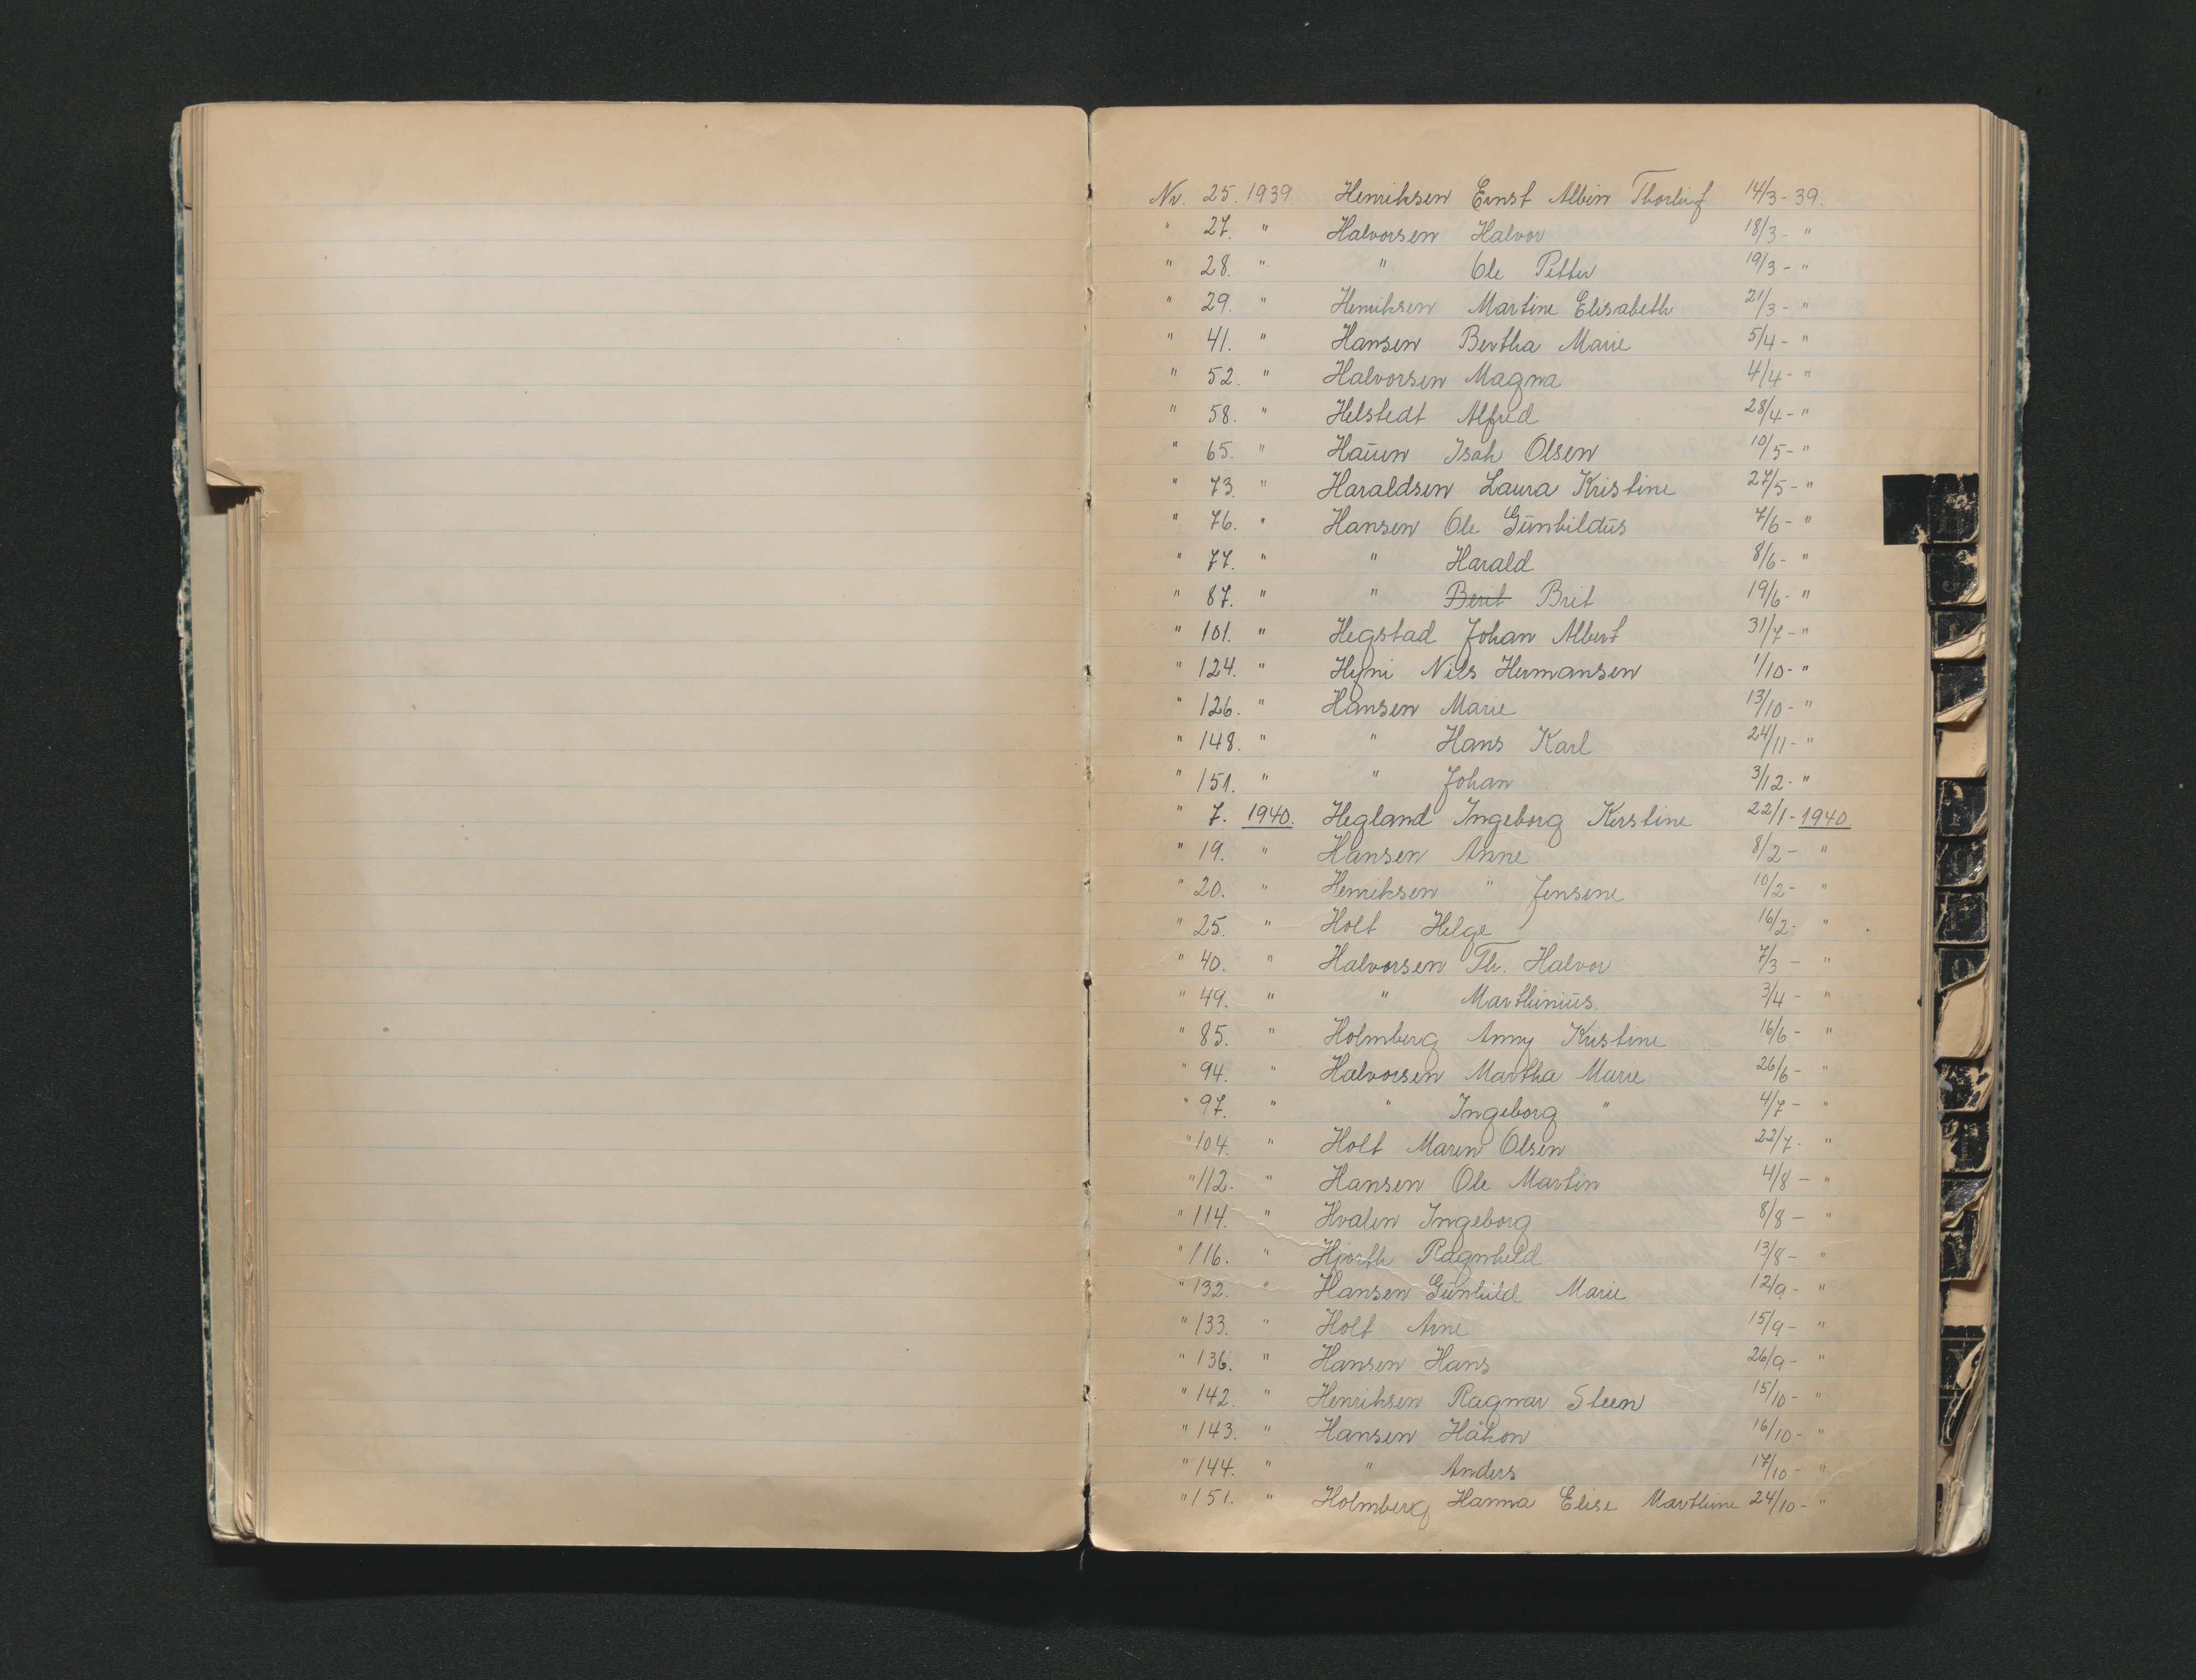 Nr. 25. 1939. Henriksen Ernst Albin Thorleif 14/3-39.
" 27. " Halvorsen Halvor 18/3- "
" 28. " " Ole Petter 19/3- "
" 29. " Henriksen Martine Elisabeth 21/3- "
" 41. " Hansen Bertha Marie 5/4- "
" 52. " Halvorsen Magna 4/4- "
" 58. " Helstedt Alfred 28/4- "
" 65. " Hauen Isak Olsen 10/5- "
" 73. " Haraldsen Laura Kristine 27/5- "
" 76. " Hansen Ole Gunhildus 7/6- "
" 77. " " Harald 8/6- "
" 87. " " Berit Brit 19/6- "
" 101. " Hegstad Johan Albert 31/7- "
" 124. " Nils Hermansen 1/10- "
" 126. " Hansen Marie 13/10- "
" 148. " " Hans Karl 24/11- "
" 151. " " Johan 3/12- "
" 7. 1940. Hegland Ingeborg Kirstine 22/1-1940.
" 19. " Hansen Anne 8/2- "
" 20. " Henriksen " Jensine 10/2- "
" 25. " Holt Helge 16/2- "
" 40. " Halvorsen Th. Halvor 7/3- "
" 49. " " Marthinius. 3/4- "
" 85. " Holmberg Anny Kristine 16/6- "
" 94. " Halvorsen Martha Marie 26/6- "
" 97. " " Ingeborg " 4/7- "
" 104. " Holt Maren Olsen 22/7- "
" 112. " Hansen Ole Martin 4/8- "
" 114. " Hvalen Ingeborg 8/8- "
" 116. " Hjorth Ragnhild 13/8- "
" 132. " Hansen Gunhild Marie 12/9- "
" 133. " Holt Arne 15/9- "
" 136. " Hansen Hans 26/9- "
" 142. " Henriksen Ragnar Steen 15/10- "
" 143. " Hansen Håkon 16/10- "
" 144. " " Anders 17/10- "
" 151. " Holmberg Hanna Elise Marthine 24/10- "